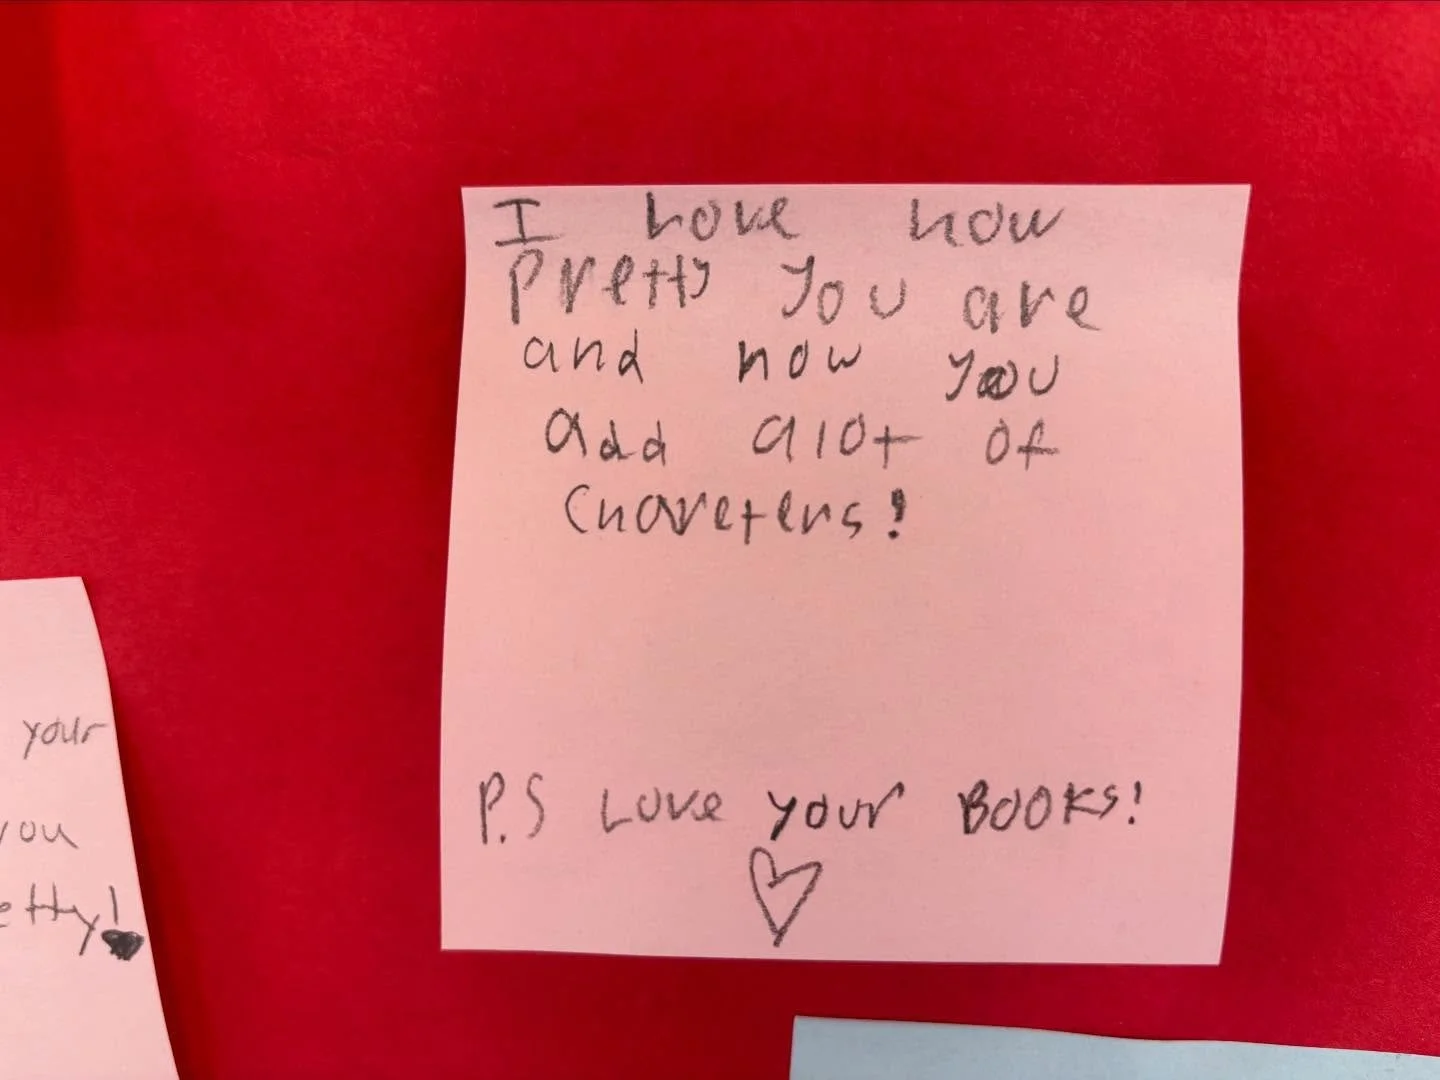 I Love how
Pretty You are
and how you
add alot of
Chareters!
P.S Love your Books!
your
you
etty!